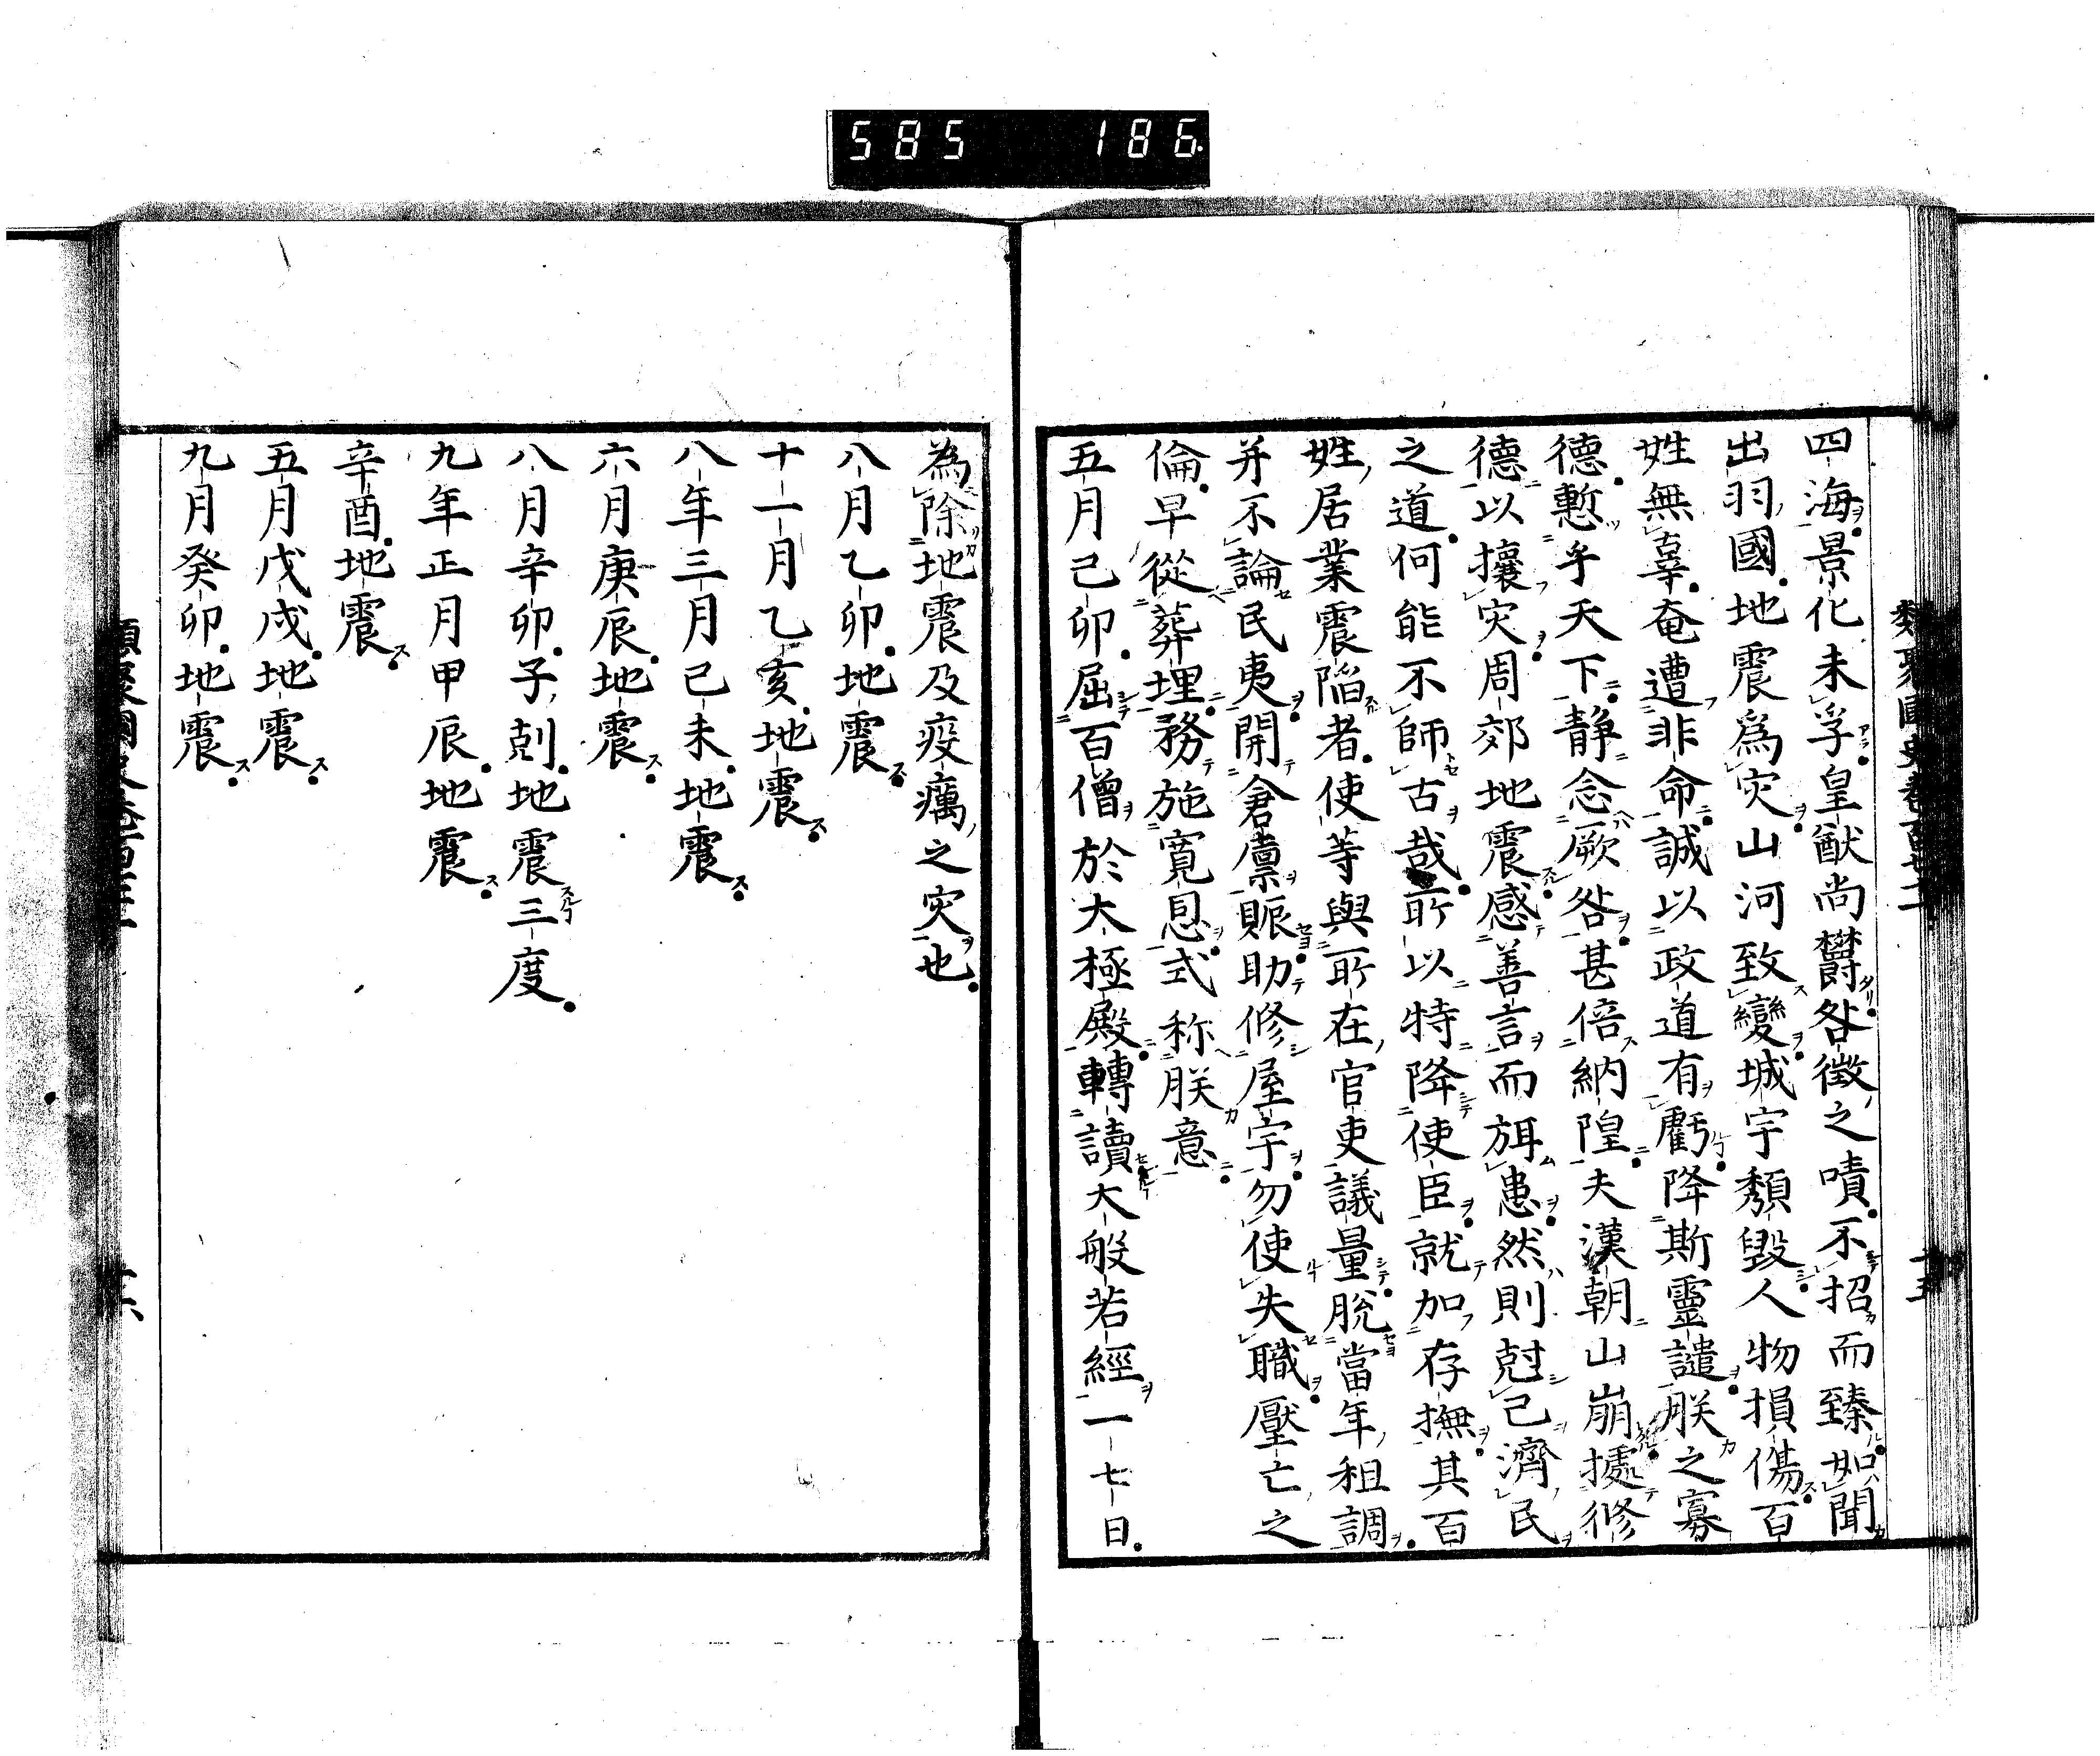 585 186
四海景化未孚皇猷尚欝咎徴之嘖不招而臻如聞
出羽國地震爲灾山河致變城宇頽毀人物損傷百
姓無辜奄遭非命誠以政道有虧降斯靈譴朕之寡
德慙乎天下静念厥咎甚倍納隍夫漢朝山崩據修
德以攘灾周郊地震感善言而弭患然則尅己濟民
之道何能不師古哉所以特降使臣就加存撫其百
姓居業震陥者使等與所在官吏議量脱當年租調
并不論民夷開倉廩賑助修屋宇勿使失職壓亡之
倫早從葬埋務施寛恩式称朕意
五月己卯屈百僧於大極殿轉讀大般若經一七日
為除地震及疫癘之灾也
八月乙卯地震
十一月乙亥地震
八年三月己未地震
六月庚辰地震
八月辛卯子剋地震三度
九年正月甲辰地震
辛酉地震
五月戊戌地震
九月癸卯地震